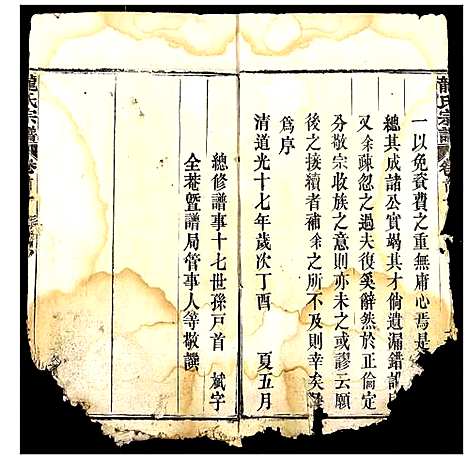 龍氏宗譜 卷首
一以免資費之重無庸心焉是
總其成諸公實竭其才倘遺漏錯訛
又余疎忽之過夫復奚辭然於正倫定
分敬宗收族之意則亦未之或謬云願
後之接續者補余之所不及則幸矣
爲序
清道光十七年歲次丁酉 夏五月
總修譜事十七世孫戸首 斌字
全菴暨譜局管事人等敬譔
龍氏宗譜 卷首